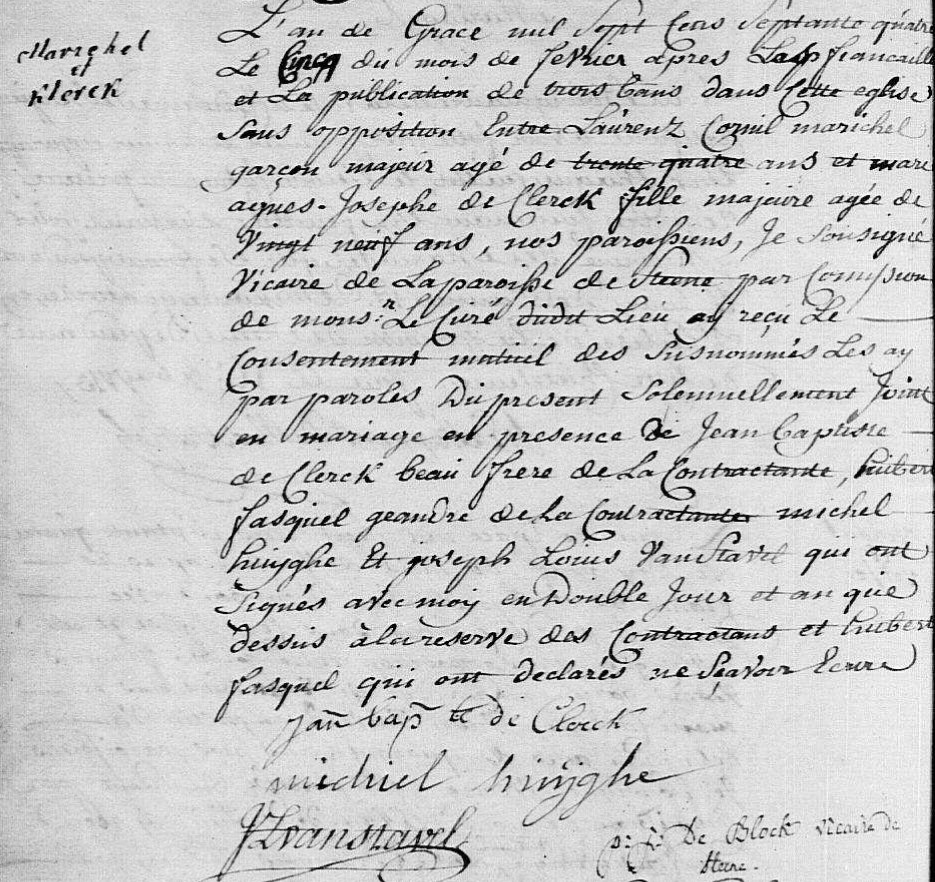 Marichel
et
Klerck
L'an de Grace mil Sept Cens Septante quatre
Le Cincq du mois de fevrier apres Les fiancaille
et La publication de trois bans dans Cette eglise
sans opposition Entre Laurenz Cornil marichel
garçon majeur agé de trente quatre ans et marie
agnes Josephe de Clerck fille majeure agée de
Vingt neuf ans, nos paroissiens, Je Sousigné
Vicaire de La paroisse de Steene par Comission
de mons:r Le Curé dudit Lieu ay reçu Le
Consentement mutuel des Susnommés Les ay
par paroles Du present Solemnellement Joint
en mariage en presence de Jean baptiste
de Clerck beau frere de La Contractante, hubert
fasquel geandre de La Contractante michel
huyghe Et joseph Louis Vanstavel qui ont
Signés avec moy en Double Jour et an que
dessus à la reserve des Contractans et hubert
fasquel qui ont declarés ne Scavoir Ecrire
Jan bap te de Clerck
michiel huÿghe
JL vanstavel
p: L: De Block vicaire de
Stene.